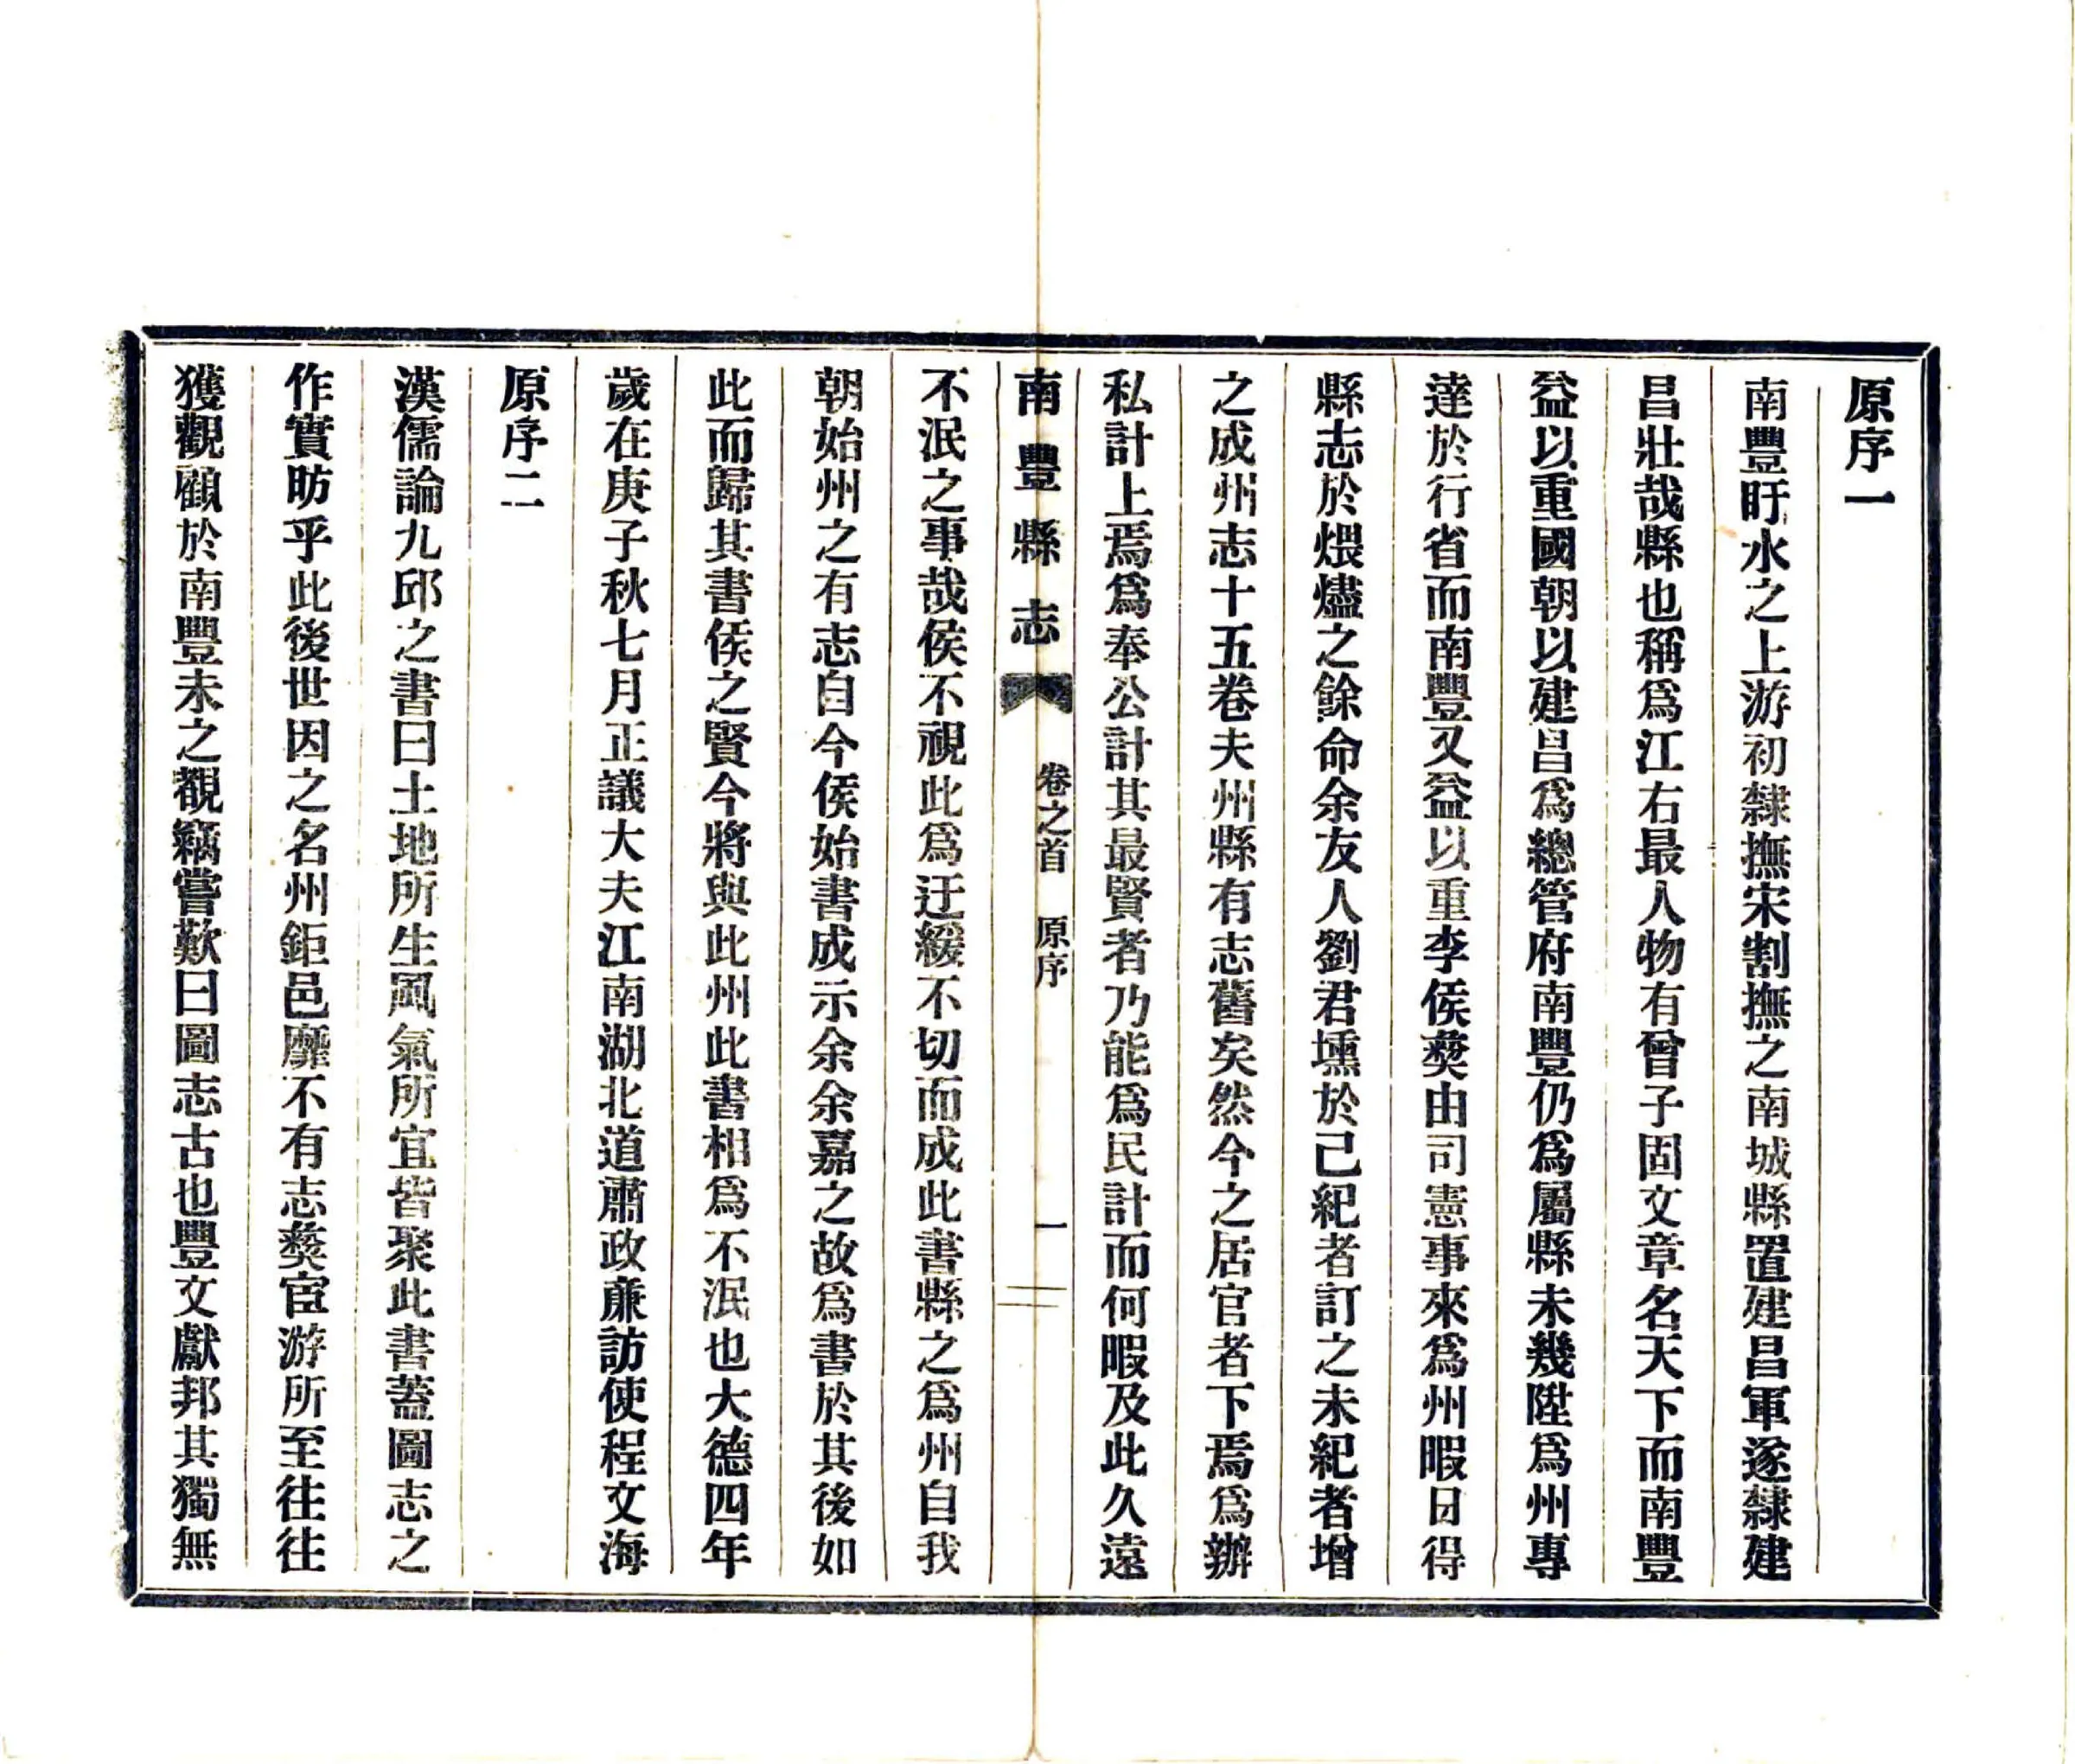 原序一
南豐盱水之上游初隸撫宋割撫之南城縣置建昌軍遂隸建
昌壯哉縣也稱爲江右最人物有曾子固文章名天下而南豐
益以重國朝以建昌爲總管府南豐仍爲屬縣未幾陞爲州專
達於行省而南豐又益以重李侯彝由司憲事來爲州暇日得
縣志於煨燼之餘命余友人劉君壎於已紀者訂之未紀者增
之成州志十五卷夫州縣有志舊矣然今之居官者下焉爲辦
私計上焉爲奉公計其最賢者乃能爲民計而何暇及此久遠
南豐縣志 卷之首 原序 一
不泯之事哉侯不視此爲迂緩不切而成此書縣之爲州自我
朝始州之有志自今侯始書成示余余嘉之故爲書於其後如
此而歸其書侯之賢今將與此州此書相爲不泯也大德四年
歲在庚子秋七月正議大夫江南湖北道肅政亷訪使程文海
原序二
漢儒論九邱之書曰土地所生風氣所宜皆聚此書蓋圖志之
作實昉乎此後世因之名州鉅邑靡不有志彝宦游所至往往
獲觀顧於南豐未之覩竊嘗歎曰圖志古也豐文獻邦其獨無